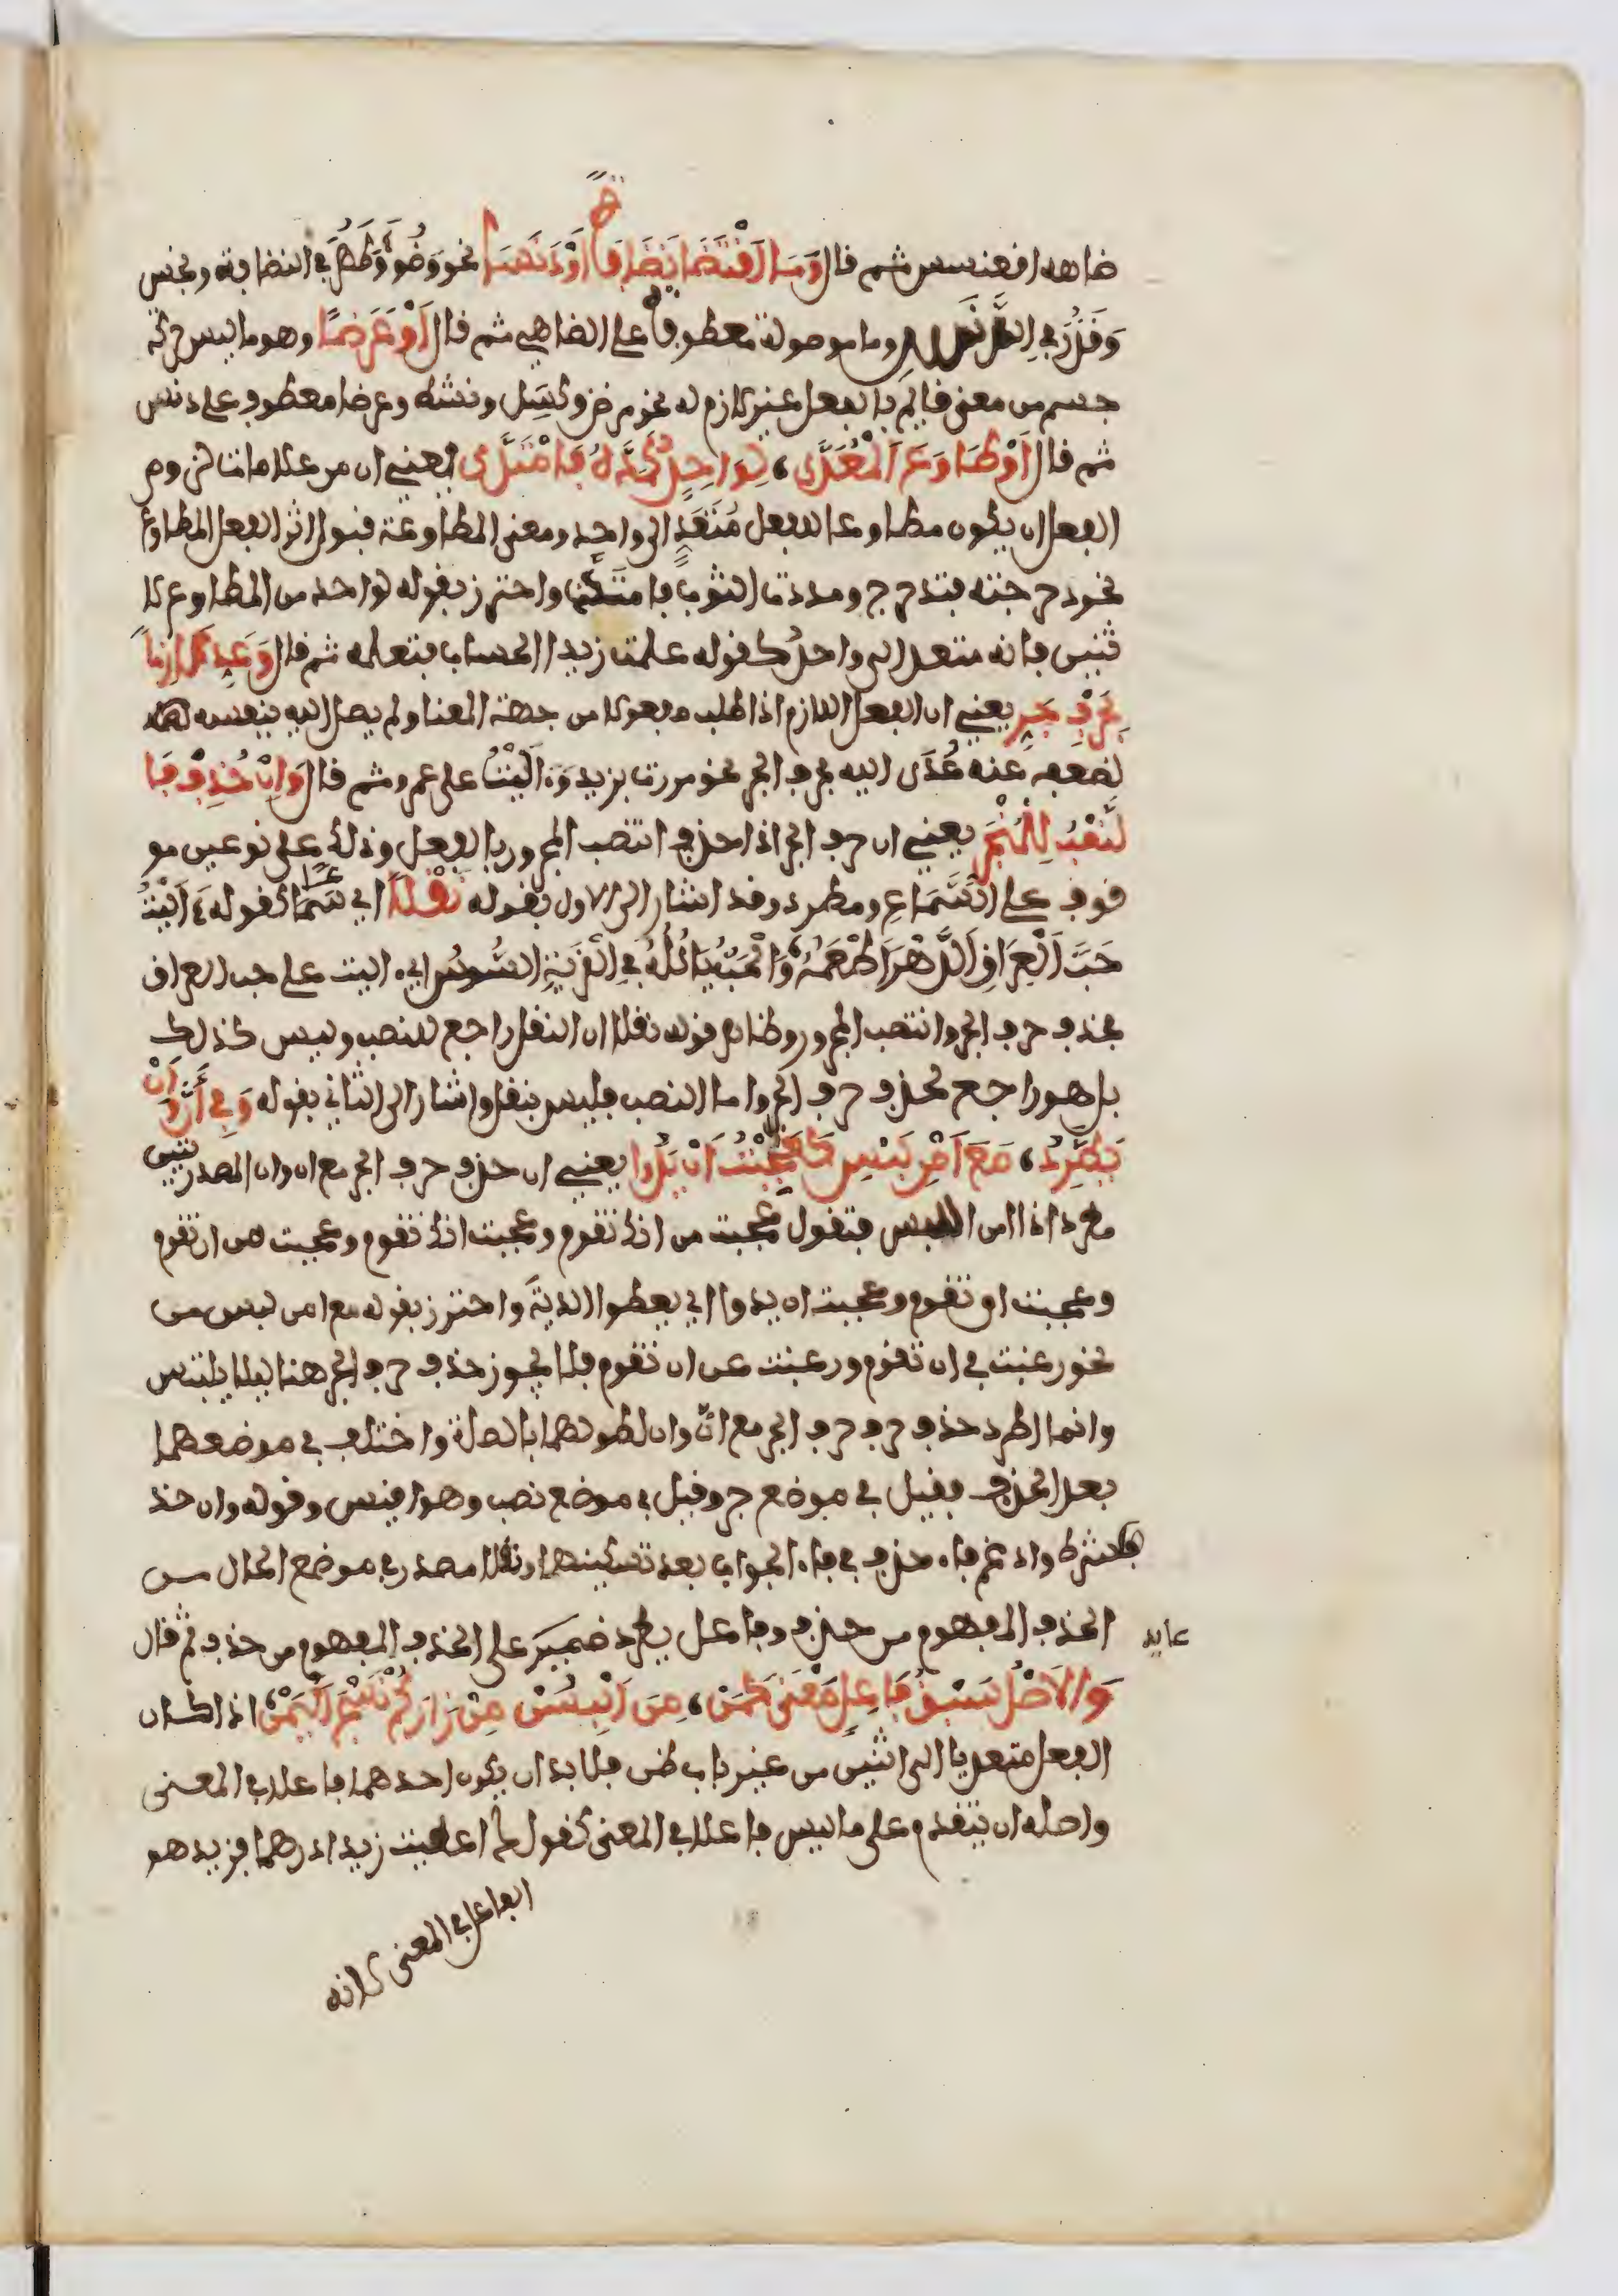 ضاهه افعنسس ثم قال وَمَا اقْتَضَا نَضَافَةً أَوْ دَنَسَا نحو وَضُوَ وَطَهُرَ في النضافة ونجس
وَقَذُرَ في الدنس وما موصولة معطوفة على المضاهي ثم قال أَوْ عَرَضًا وهو ما ليس حركة
جسم من معنى قايم بالفعل غير لازم له نحو مرض وكسِل ونشط وعرضا معطوف على دنس
ثم قال أَوْ طَاوَعَ الْمُعَدَّى، لِوَاحِدٍ كَمَدَّهُ فَامْتَدَّى يعني ان من علامات لزوم
الفعل ان يكون مطاوعا للفعل مُتَعَدٍ الى واحد ومعنى المطاوعة قبول اثر الفعل المطاوع
نحو دحرجته فتدحرج ومددت الثوب فامتد واحترز بقوله لواحد من المطاوع لا
ثنين فانه متعد الى واحد كقوله علمت زيدا الحساب فتعلمه ثم قال وَعَدِّ لَازِمًا
بِحَرْفِ جَرٍ يعني ان الفعل اللازم اذا طلب مفعولا من جهة المعنا ولم يصل اليه بنفسه
لضعفه عنه عُدَّى اليه بحرف الجر نحو مررت بزيد وءاليت على عمرو ثم قال وَإِنْ حُذِفْ فَا
لنَّصْبُ لِلْمُنْجَرِّ يعني ان حرف الجر اذا حذف انتصب المجرور بالفعل وذلك على نوعين مو
قوف على السَّمَاعِ ومطرد وقد اشار الى الاول بقوله نَقْلًا اي سَمَاعًا كقوله ءَالَيْتُ
حَبَّ الْعِرَاقِ الدَّهْرَ أَطْعَمُهُ، وَالْحَبُّ يَاكُلُهُ فِي الْقَرْيَةِ السُّوسُ اي ءاليت على حب العراق
بحذف حرف الجر وانتصب المجرور وظاهر قوله نقلا ان النقل راجع للنصب وليس كذلك
بل هو راجع لحذف حرف الجر واما النصب فليس بنقل واشار الى الثاني بقوله وَفِي أَنَّ وَأَنْ
يَطَّرِدُ، مَعَ أَمْنِ لَبْسٍ كَعَجِبْتُ أَنْ يَدُوا يعني ان حذف حرف الجر مع ان وان المصدريتين
مطرد اذا امن اللبس فتقول عجبت من انك تقوم وعجبت انك تقوم وعجبت من ان تقوم
وعجبت ان تقوم وعجبت ان يدوا اي يعطوا الديَةَ واحترز بقوله مع امن لبس من
نحو رغبت في ان تقوم ورغبت عن ان تقوم فلا يجوز حذف حرف الجر هنا ليلا يلتبس
وانما اطرد حذف حرف حرف الجر مع انَّ وان لطولهما بالصلة واختلف في موضعهما
بعد الحذف فقيل في موضع جر وقيل في موضع نصب وهو اقيس وقوله وان حذ
ف شرط وادغم فاء حذف في فاء الجواب بعد تسكينها ونقلا مصدر في موضع الحال من
الحذف المفهوم من حذف وفاعل يطرد ضمير على الحذف المفهوم من حذف ثم قال
عايد
وَالأَصْلُ سَبْقُ فَاعِلٍ مَعْنًى كَمَنْ، مِنَ الْبِسُنْ مَنْ زَارَكُمْ نَسْجَ الْيَمَنْ، اذا كان
الفعل متعديا الى اثنين من غير باب ظن فلا بد ان يكون احدهما فاعلا في المعنى
واصله ان يتقدم على ما ليس فاعلا في المعنى كقولك اعطيت زيدا درهما فزيد هو
الفاعل في المعنى لانه